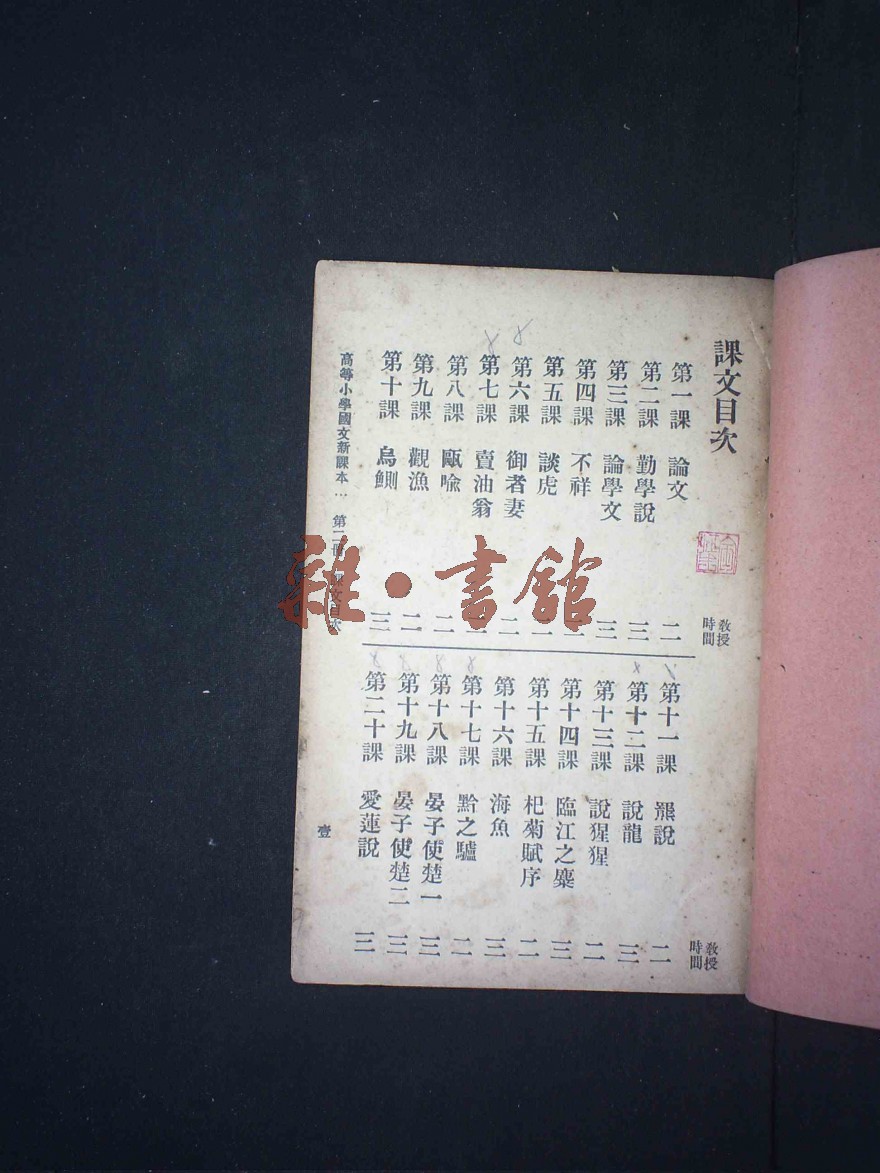 課文目次
教授時間
第一課 論文 二
第二課 勤學說 三
第三課 論學文 三
第四課 不祥
第五課 談虎
第六課 御者妻 二
第七課 賣油翁
第八課 甌喻 二
第九課 觀漁 二
第十課 烏鰂 三
教授時間
第十一課 羆說 二
第十二課 說龍 三
第十三課 說猩猩 二
第十四課 臨江之麋 三
第十五課 杞菊賦序 二
第十六課 海魚 三
第十七課 黔之驢 二
第十八課 晏子使楚一 三
第十九課 晏子使楚二 三
第二十課 愛蓮說 三
高等小學國文新課本… 第二冊 課文目次
壹
雜·書館